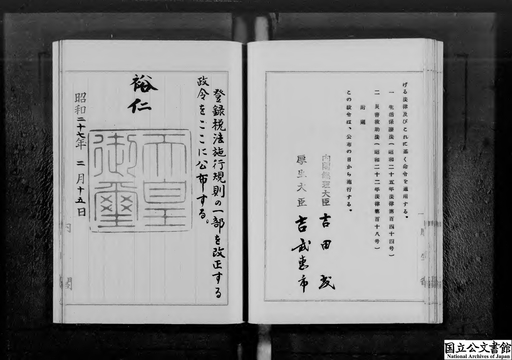 げる法律及びこれに基く命令を適用する。
一 生活保護法(昭和二十五年法律第百四十四号)
二 災害救助法(昭和二十二年法律第百十八号)
附 則
この政令は、公布の日から施行する。
内閣総理大臣 吉田茂
厚生大臣 吉武恵市
登録税法施行規則の一部を改正する
政令をここに公布する。
裕仁
天皇
御璽
昭和二十七年 二月十五日
内閣
国立公文書館
National Archives of Japan